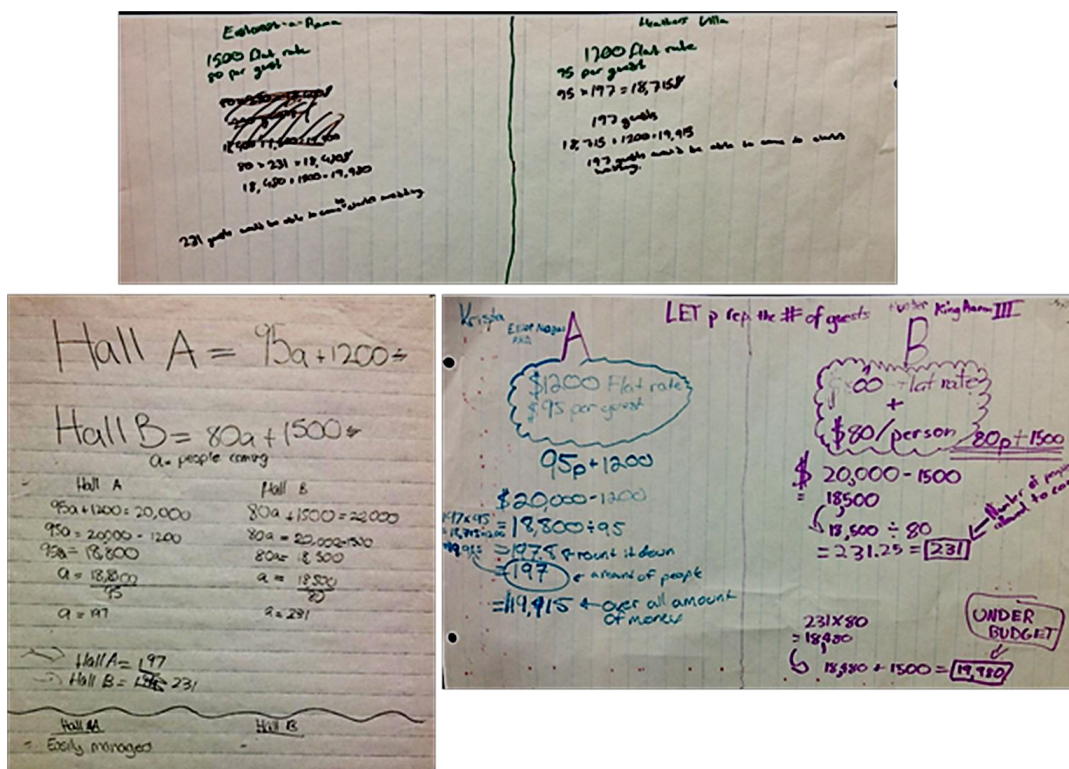 1500 flat rate
80 per guest
80 × 231 = 18,480
18,480 + 1500 = 19,980
231 guests would be able to come to wedding
Villa
1200 flat rate
95 per guest
95 × 197 = 18,715
197 guests
18,715 + 1200 = 19,915
197 guests would be able to come to
wedding.
Hall A = 95a + 1200
Hall B = 80a + 1500
a = people coming
Hall A
95a + 1200 = 20,000
95a = 20,000 - 1200
95a = 18,800
a = 18,800
95
a = 197
Hall B
80a + 1500 =
80a = 20,000 - 1500
80a = 18,500
a = 18500
80
a = 231
Hall A = 197
Hall B = 231
Hall A
Easily managed
Hall B
Krista
LET p rep the # of guests King Aaron III
A
$1200 Flat rate
$95 per guest
95p + 1200
$20,000 - 1200
= 18,800 ÷ 95
round it down
= 197 amount of people
= 19,915 over all amount
of money
197 × 95
B
flat rate
+
$80/person
80p + 1500
$ 20,000 - 1500
= 18500
18,500 ÷ 80
= 231.25 = 231
Number of people
231 × 80
= 18,480
18,480 + 1500 = 19,980
UNDER
BUDGET